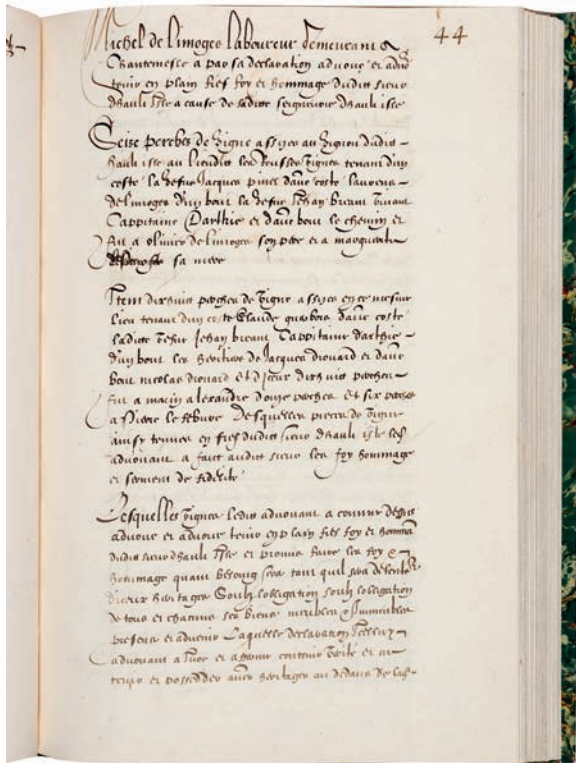 44
Michel de Limoges laboureur demeurant a
Chantemesle a par sa declaration advoue et advoue
tenir en plain fief foy et hommage dudict sieur
dhault Isle a cause de sadicte seigneurie dhault isle
Seise perches de vigne assyse au vignon dudit
hault isle au lieudict les vignes tenant dun
coste la vefve Jacques pinel daultre coste laurens
delimoges dun bout la vefve Jehan breant vivant
Cappitaine Darthie et daultre bout le chemin et
fut a olivier delimoges son pere et a marguerite
sa mere
Item dixhuict perches de vigne assyse en ce mesme
lieu tenant dun coste Claude daultre coste
ladicte vefve Jehan breant Cappitaine darthie
dun bout les heritiers de Jacques drouard et daultre
bout nicolas drouard et dixhuict perches
fut a alexandre douze perches et six perches
a Pierre lefebure desquelles pieces de vigne
ainsy tenues en fief dudict sieur dhault isle led
advouant a faict audict sieur les foy hommage
et serment de fidelite
Lesquelles vignes ledit advouant a comme dessus
advoue et advoue tenir en plain fief foy et hommage
dudit sieur dhault Isle et promis faire les foy &
hommage quant besoing sera tant quil sera detenteur
diceux heritages Soubz lobligation soubz lobligation
de tous et chacuns ses biens meubles & immeubles
presens et advenir Laquelle declaration Icelluy
advouant a Jure et afferme contenir verite et
et posseder aucuns heritages au dedans de lad